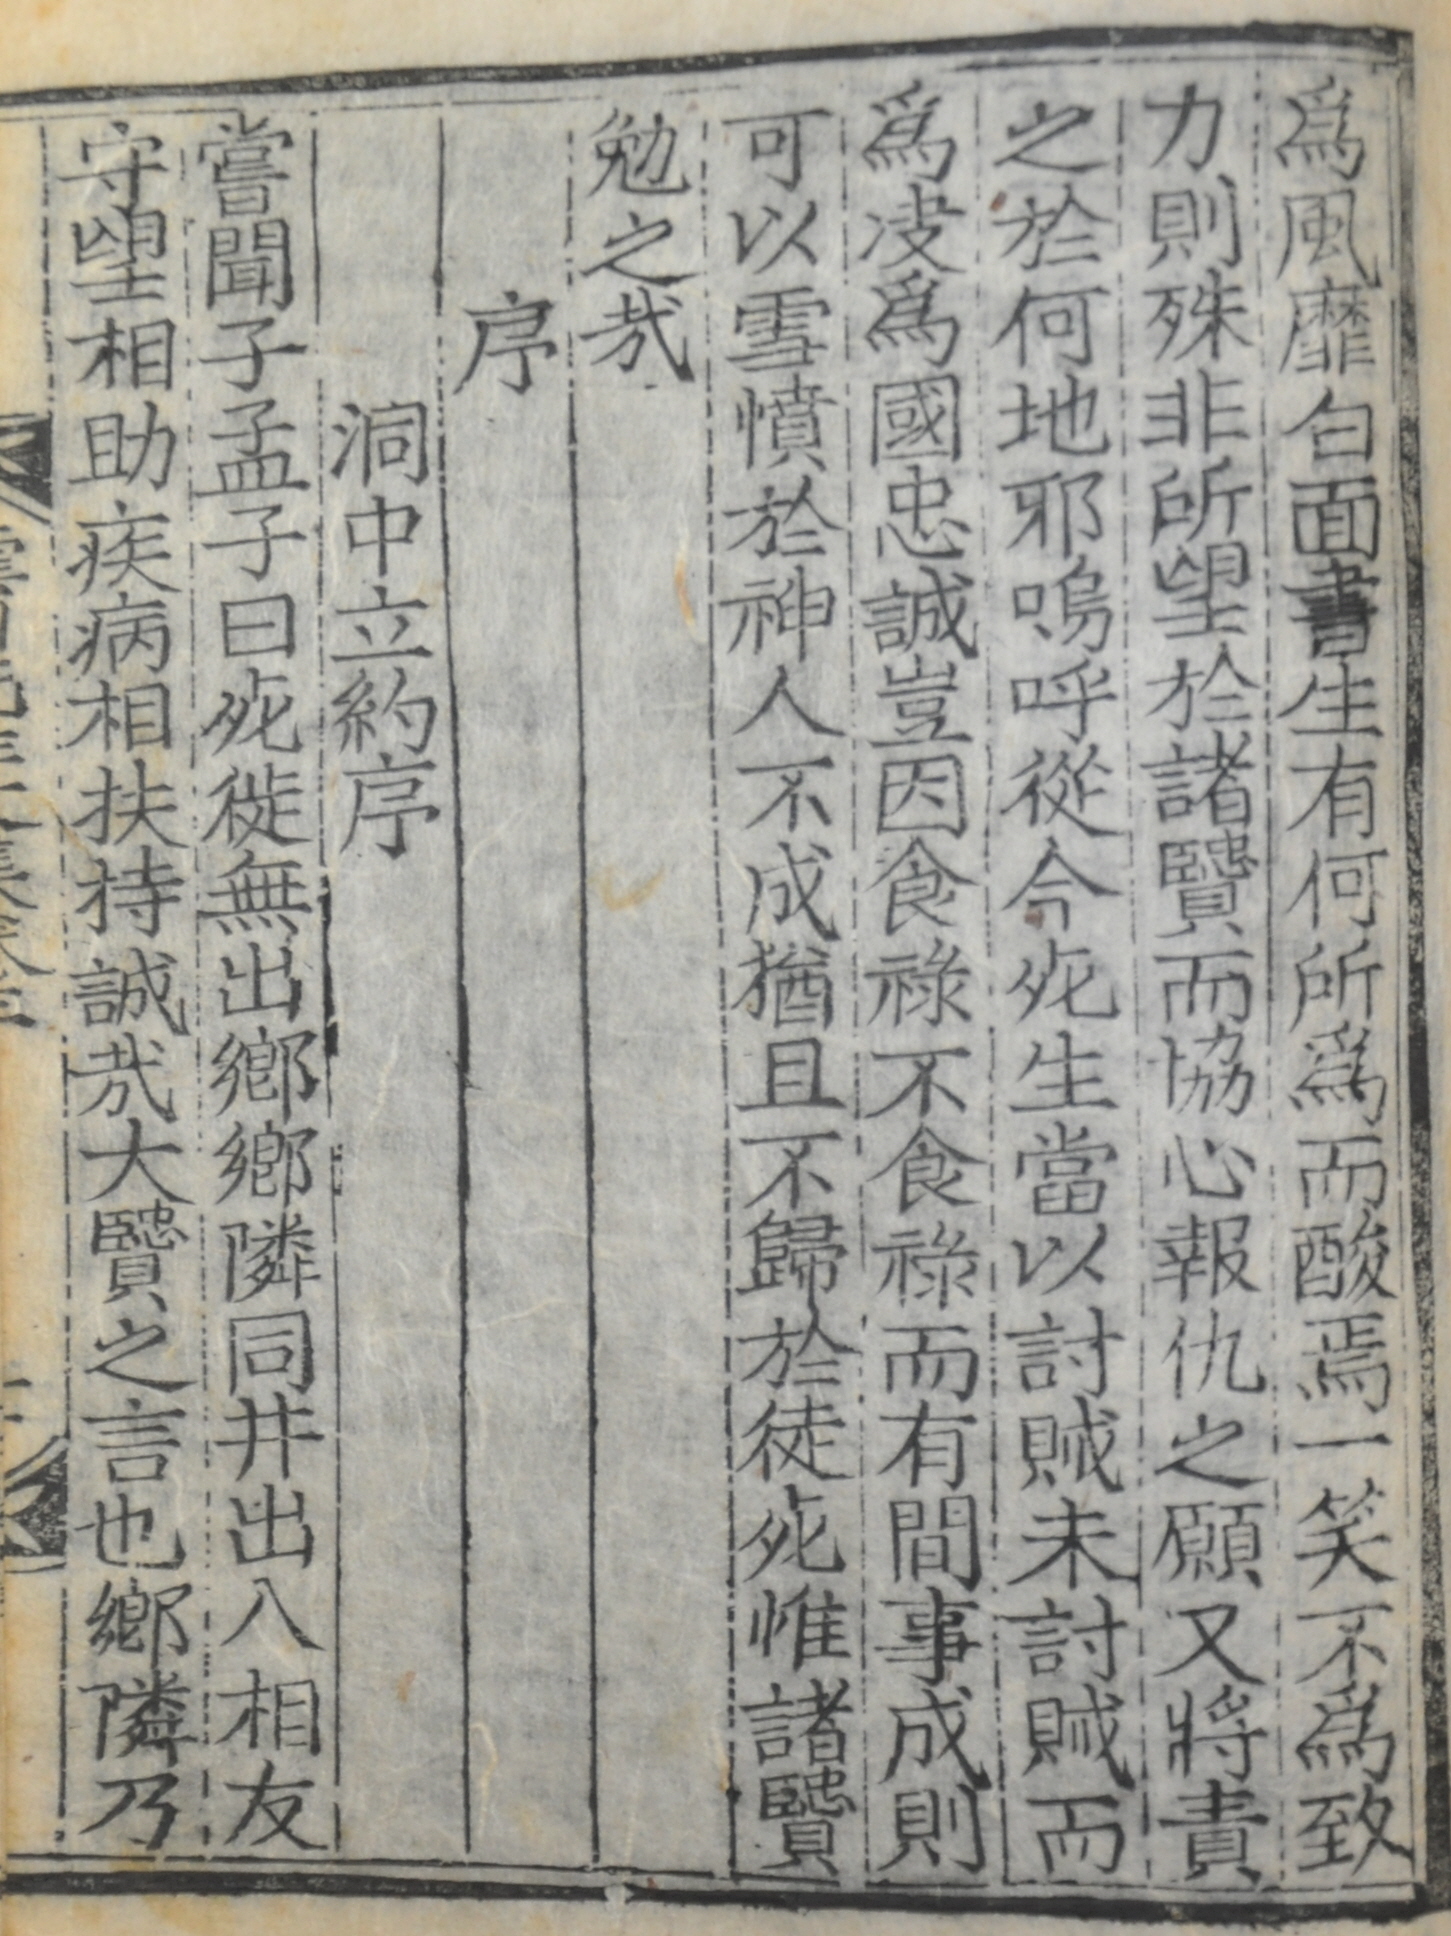 爲風靡白面書生有何所爲而酸焉一笑不爲致
力則殊非所望於諸賢而協心報仇之願又將責
之於何地耶嗚呼從今死生當以討賊未討賊而
爲決爲國忠誠豈因食祿不食祿而有間事成則
可以雪憤於神人不成猶且不歸於徒死惟諸賢
勉之哉
序
洞中立約序
嘗聞子孟子曰死徙無出鄕鄕隣同井出入相友
守望相助疾病相扶持誠哉大賢之言也鄕隣乃